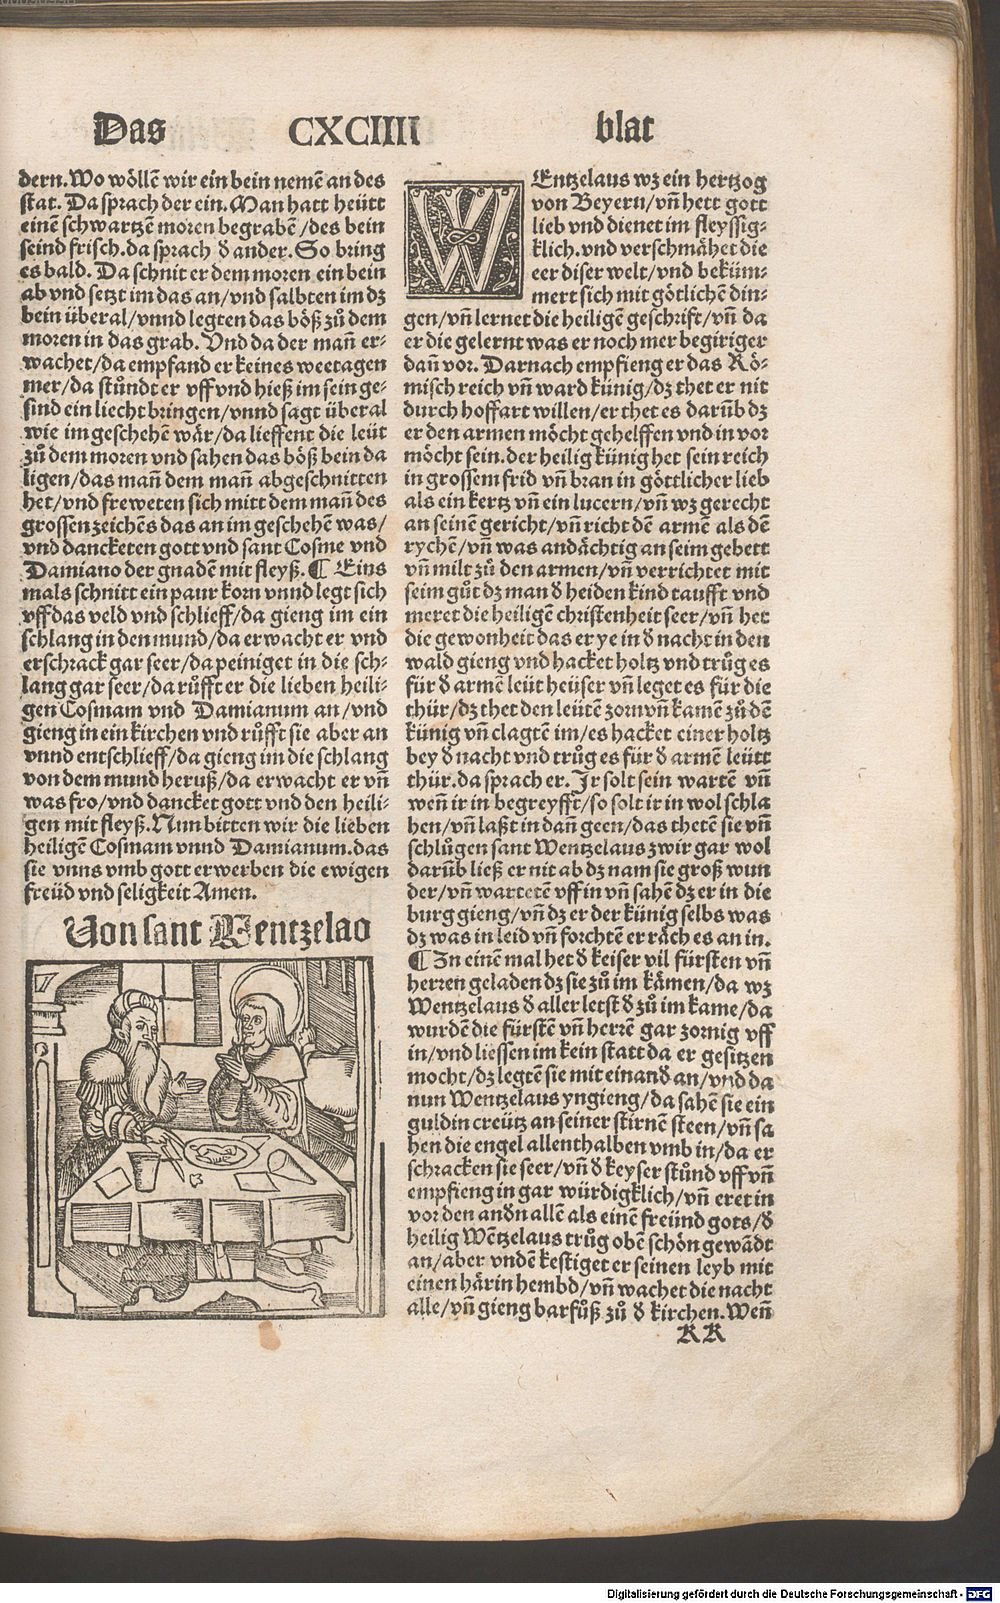 Das CXCIIII blat
dern. Wo wöllē wir ein bein nemē an des
stat. Da sprach der ein. Man hatt heütt
einē schwartzē moren begrabē /des bein
seind frisch. da sprach đ ander. So bring
es bald. Da schnit er dem moren ein bein
ab vnd setzt im das an /vnd salbten im dz
bein überal /vnnd legten das böß zů dem
moren in das grab. Vnd da der mañ er-
wachet /da empfand er keines weetagen
mer /da stůndt er vff vnd hieß im sein ge-
sind ein liecht bringen /vnnd sagt überal
wie im geschehē wär /da lieffent die leüt
zů dem moren vnd sahen das böß bein da
ligen /das mañ dem mañ abgeschnitten
het /vnd freweten sich mitt dem mañ des
grossen zeichēs das an im geschehē was /
vnd danckten gott vnd sant Cosme vnd
Damiano der gnadē mit fleyß. ¶ Eins
mals schnitt ein paur korn vnnd legt sich
vff das veld vnd schlieff /da gieng im ein
schlang in den mund /da erwacht er vnd
erschrack gar seer /da peiniget in die sch-
lang gar seer /da růfft er die lieben heili-
gen Cosmam vnd Damianum an /vnd
gieng in ein kirchen vnd růfft sie aber an
vnnd entschlieff /da gieng im die schlang
von dem mund heruß /da erwacht er vñ
was fro /vnd dancket gott vnd den heili-
gen mit fleyß. Nun bitten wir die lieben
heiligē Cosmam vnnd Damianum. das
sie vnns vmb gott erwerben die ewigen
freüd vnd seligkeit Amen.
Von sant Wentzelao
WEntzelaus wz ein hertzog
von Beyern /vñ hett gott
lieb vnd dienet im fleyssig-
klich. vnd verschmähet die
eer diser welt /vnd beküm-
mert sich mit götlichē din-
gen /vñ lernet die heiligē geschrift /vñ da
er die gelernt was er noch mer begiriger
dañ vor. Darnach empfieng er das Rö-
misch reich vñ ward künig /dz thet er nit
durch hoffart willen /er thet es darūb dz
er den armen möcht gehelffen vnd in vor
möcht sein. der heilig künig het sein reich
in grossem frid vñ bran in göttlicher lieb
als ein kertz vñ ein lucern /vñ wz gerecht
an seinē gericht /vñ richt dē armē als dē
rychē /vñ was andächtig an seim gebett
vñ milt zů den armen /vñ verrichtet mit
seim gůt dz man đ heiden kind taufft vnd
meret die heiligē christenheit seer /vñ het
die gewonheit das er ye in đ nacht in den
wald gieng vnd hacket holtz vnd trůg es
für đ armē leüt heüser vñ leget es für die
thür /dz thet den leütē zorn vñ kamē zů dē
künig vñ clagtē im /es hacket einer holtz
bey đ nacht vnd trůg es für đ armē leütt
thür. da sprach er. Ir solt sein wartē vñ
weñ ir in begreyfft /so solt ir in wol schla
hen /vñ laßt in dañ geen /das thetē sie vñ
schlůgen sant Wentzelaus zwir gar wol
darūb ließ er nit ab dz nam sie groß wun
der /vñ wartetē vff in vñ sahē dz er in die
burg gieng /vñ dz er der künig selbs was
dz was in leid vñ forchtē er räch es an in.
¶ In einē mal het đ keiser vil fürsten vñ
herren geladen dz sie zů im kämen /da wz
Wentzelaus đ aller letst đ zů im kame /da
wurdē die fürstē vñ herrē gar zornig vff
in /vnd liessen im kein statt da er gesitzen
mocht /dz legtē sie mit einanđ an /vnd da
nun Wentzelaus yngieng /da sahē sie ein
guldin creütz an seiner stirnē steen /vñ sa
hen die engel allenthalben vmb in /da er
schracken sie seer /vñ đ keyser stůnd vff vñ
empfieng in gar würdigklich /vñ eret in
vor den anđn allē als einē freünd gots /đ
heilig Wētzelaus trůg obē schön gewādt
an /aber vndē kestiget er seinen leyb mit
einen härin hembd /vñ wachet die nacht
alle /vñ gieng barfůß zů đ kirchen. Weñ
KK
Digitalisierung gefördert durch die Deutsche Forschungsgemeinschaft - DFG